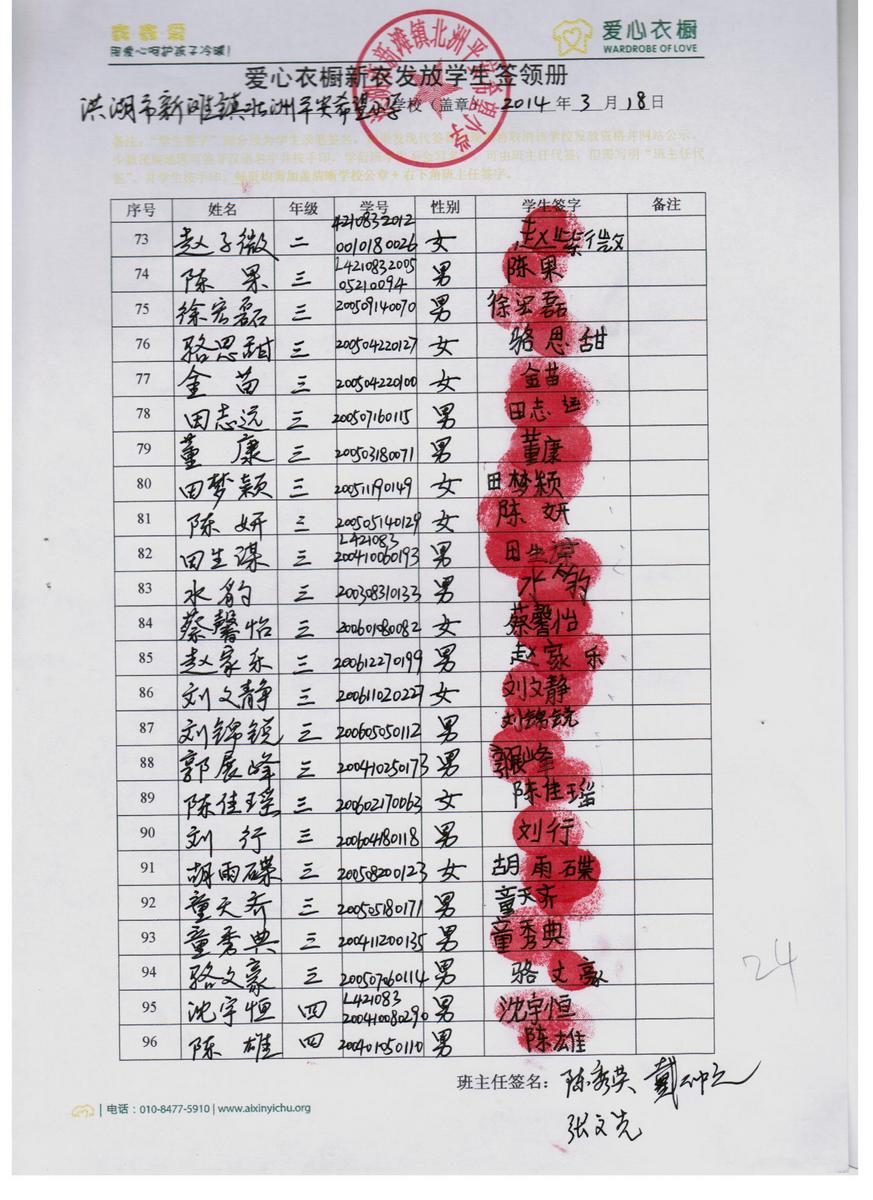 用爱心呵护孩子冷暖!
爱心衣橱
WARDROBE OF LOVE
爱心衣橱新衣发放学生签领册
洪湖市新滩镇北洲平安希望小学学校（盖章） 2014年3月18日
序号 姓名 年级 学号 性别 学生签字 备注
73 赵子微 二 4210832012 0010180026 女 赵紫微
74 陈果 三 L4210832005 05210094 男 陈果
75 徐宏磊 三 200509140070 男 徐宏磊
76 骆思甜 三 200504220127 女 骆思甜
77 金苗 三 200504220100 女 金苗
78 田志远 三 200507160115 男 田志远
79 董康 三 200503180071 男 董康
80 田梦颖 三 200511190149 女 田梦颖
81 陈妍 三 200505140129 女 陈妍
82 田生谋 三 L421083 200410060193 男 田生
83 水豹 三 200308310133 男 水豹
84 蔡馨怡 三 200601080082 女 蔡馨怡
85 赵家乐 三 200612270199 男 赵家乐
86 刘文静 三 200611020227 女 刘文静
87 刘锦锐 三 200605050112 男 刘锦锐
88 郭展峰 三 200410250173 男 郭展峰
89 陈佳瑶 三 200602170063 女 陈佳瑶
90 刘行 三 200604180118 男 刘行
91 胡雨碟 三 200508200123 女 胡雨碟
92 童天齐 三 200505180171 男 童天齐
93 童秀典 三 200411200135 男 童秀典
94 骆文豪 三 200507060114 男 骆文豪
95 沈宇恒 四 L421083 200410080290 男 沈宇恒
96 陈雄 四 200401050110 男 陈雄
24
班主任签名：陈秀英 戴
张文先
电话：010-8477-5910 | www.aixinyichu.org